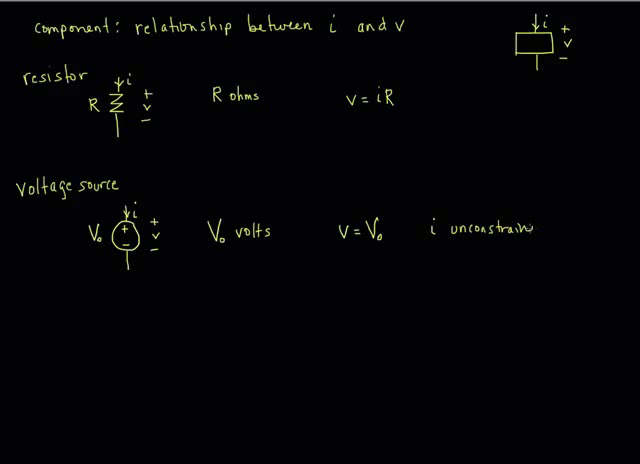 component: relationship between i and v
i
+
v
-
resistor
i
R
+
v
-
R ohms
v = iR
voltage source
i
V₀
+
-
+
v
-
V₀ volts
v = V₀
i unconstrain